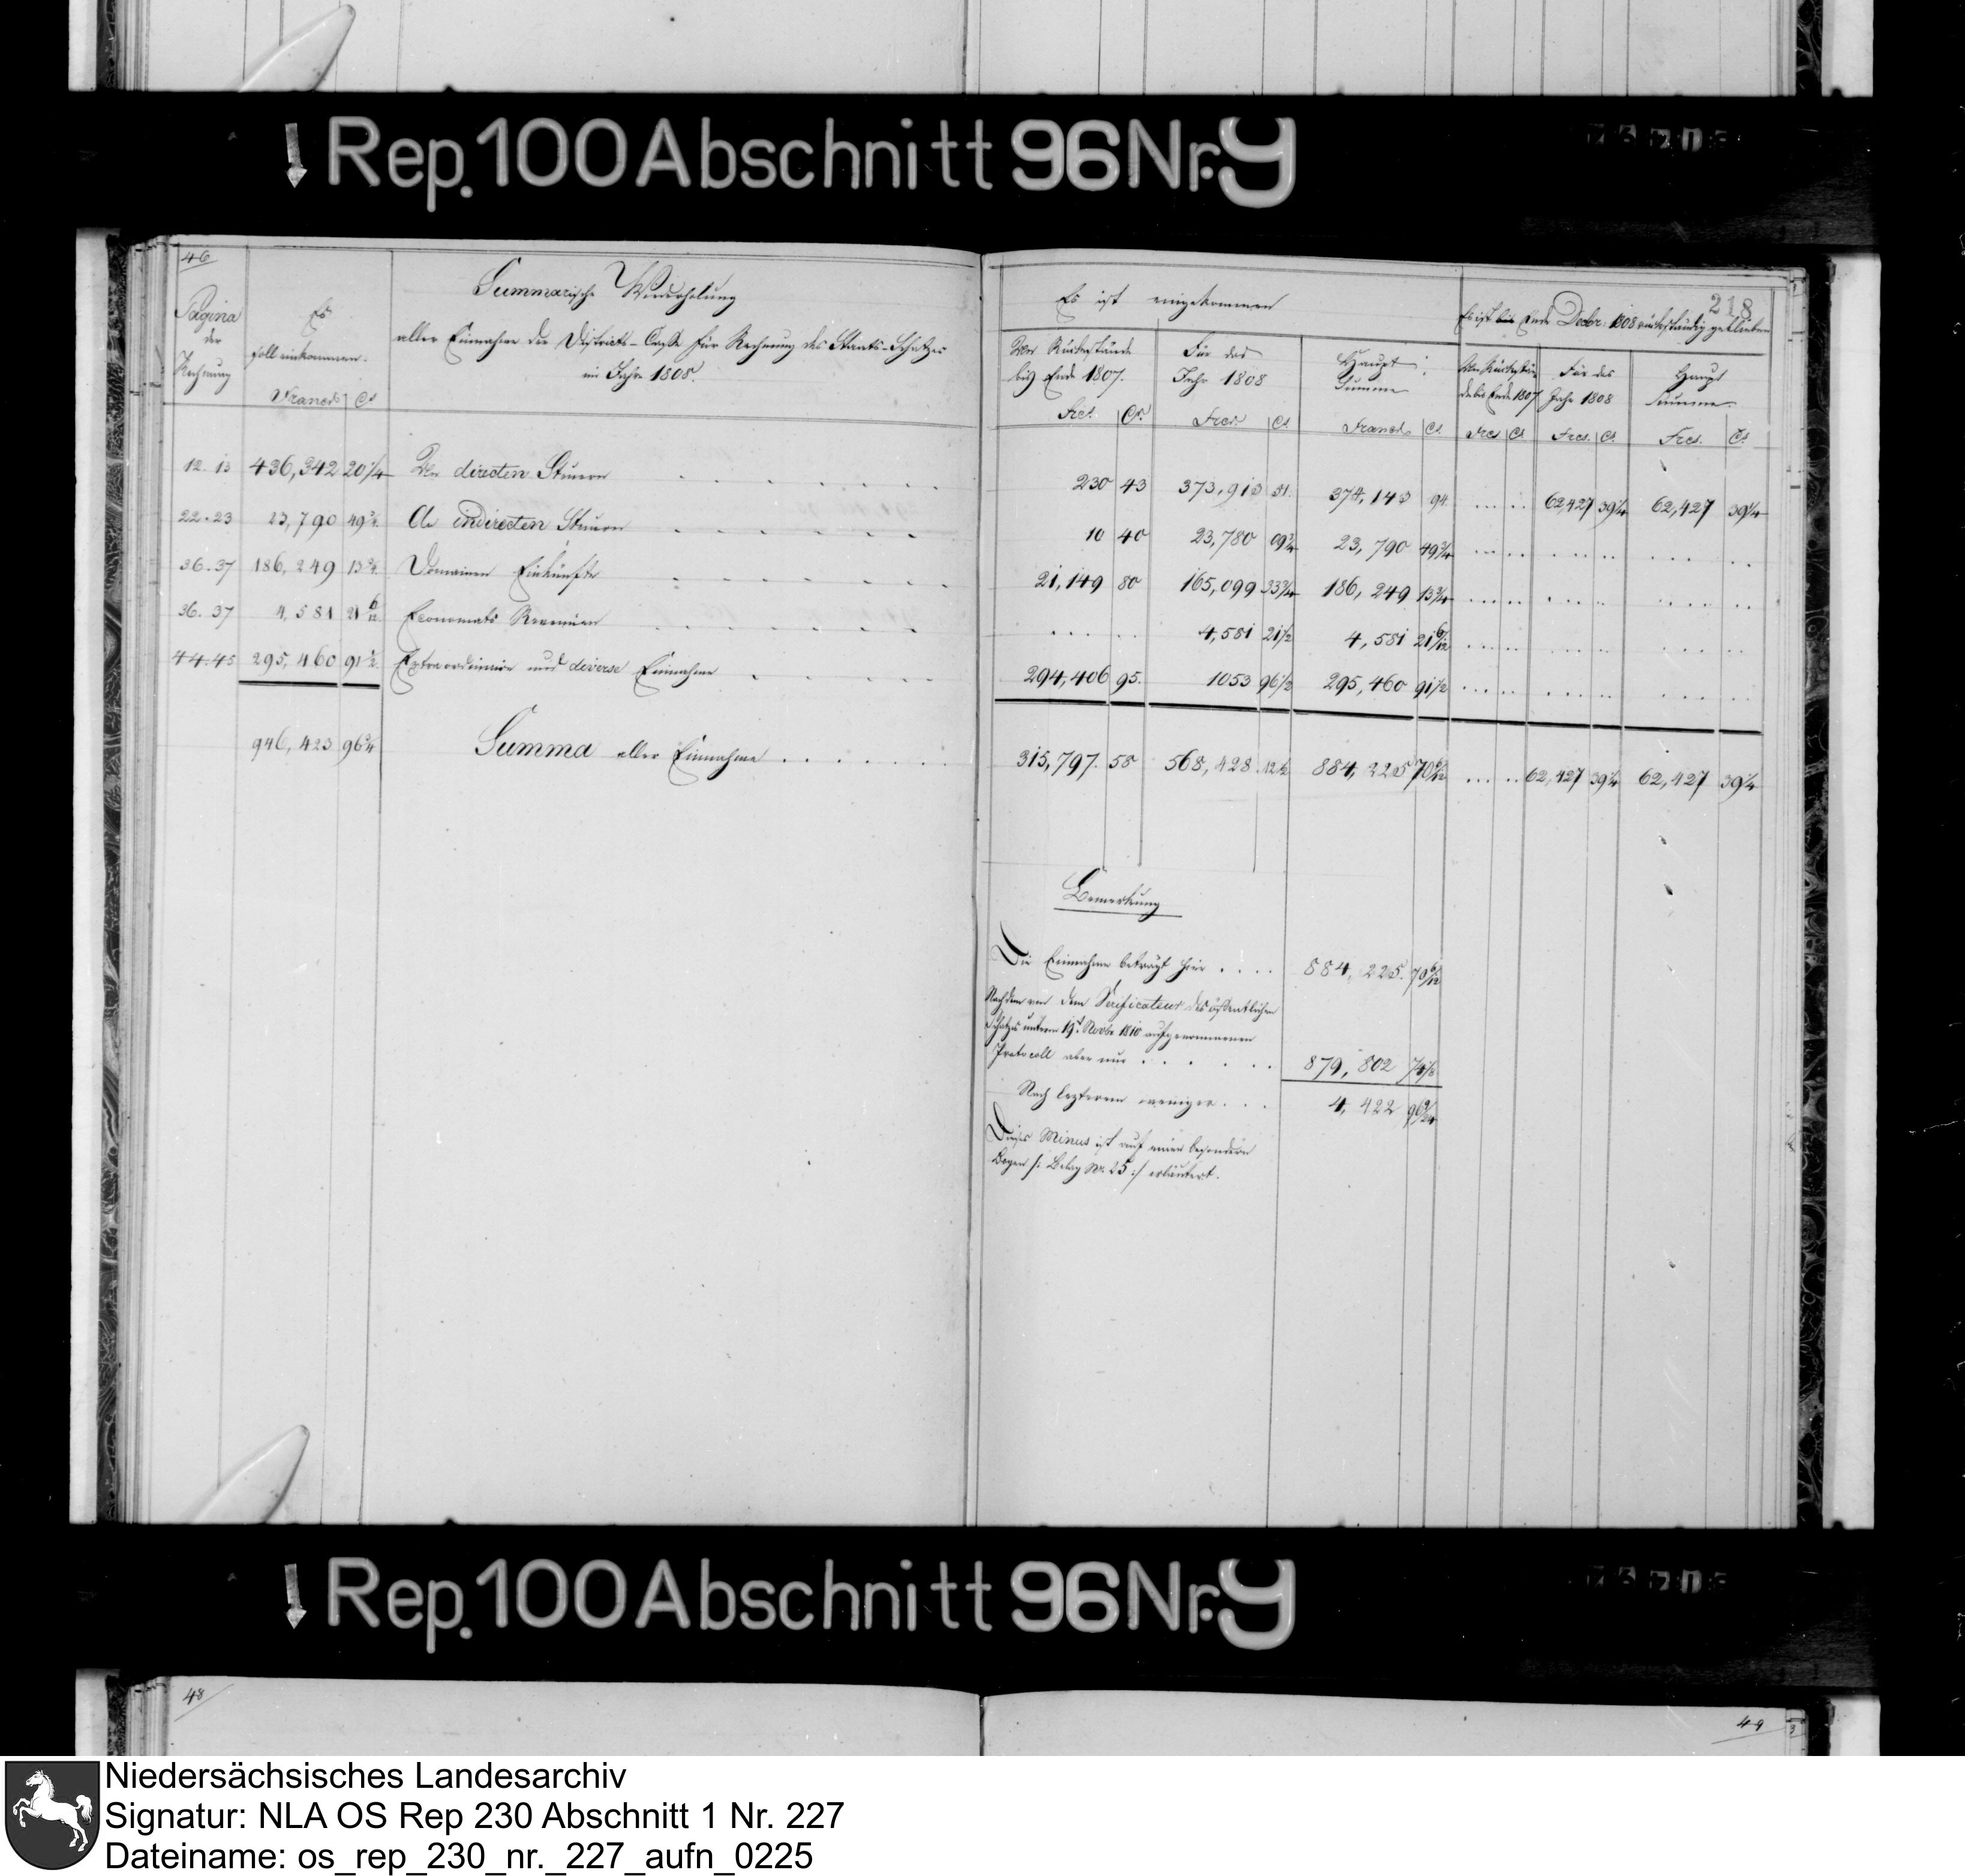 Rep. 100 Abschnitt 96 Nr. 9
46
Summarische Wiederholung
aller Einnahme der Districts-Casse für Rechnung des Staats-Schatzes
im Jahre 1808.
Pagina der Rechnung
Es soll einkommen.
Francs Cs
12. 13 436,342 20 1/4 An directen Steuern
22. 23 23,790 49 3/4 An indirecten Steuern
36. 37 186,249 13 3/4 Domainen Einkünfte
36. 37 4,581 21 6/12 Economats Revenüen
44. 45 295,460 91 1/2 Extraordinaire und diverse Einnahme
946,423 96 3/4 Summa aller Einnahme
218
Es ist eingekommen
Es ist bis Ende Decbr. 1808 rückständig geblieben
An Rückstände bis Ende 1807.
Für das Jahr 1808
Haupt Summe
An Rückstände bis Ende 1807
Für das Jahr 1808
Haupt Summe
Frcs. Cs. Frcs. Cs Francs Cs. Frcs Cs Frcs. Cs. Frcs. Cs.
230 43 373,913 51. 374,143 94 62,427 39 1/4 62,427 39 1/4
10 40 23,780 09 3/4 23,790 49 3/4
21,149 80 165,099 33 3/4 186,249 13 3/4
4,581 21 1/2 4,581 21 6/12
294,406 95. 1053 96 1/2 295,460 91 1/2
315,797. 58 568,428. 12 1/2 884,225 70 6/12 62,427 39 1/4 62,427 39 1/4
Bemerkung
Die Einnahme beträgt hier 884,225. 70 6/12
Nach dem von dem Verificateur des öffentlichen
Schatzes unterm 19t. Novbr 1810 aufgenommenen
Protocoll aber nur 879,802
Nach lezterem weniger 4,422
Dieses Minus ist auf einem besondern
Bogen /: Belag Nr. 25 :/ erläutert.
Rep. 100 Abschnitt 96 Nr. 9
48
49
Niedersächsisches Landesarchiv
Signatur: NLA OS Rep 230 Abschnitt 1 Nr. 227
Dateiname: os_rep_230_nr._227_aufn_0225